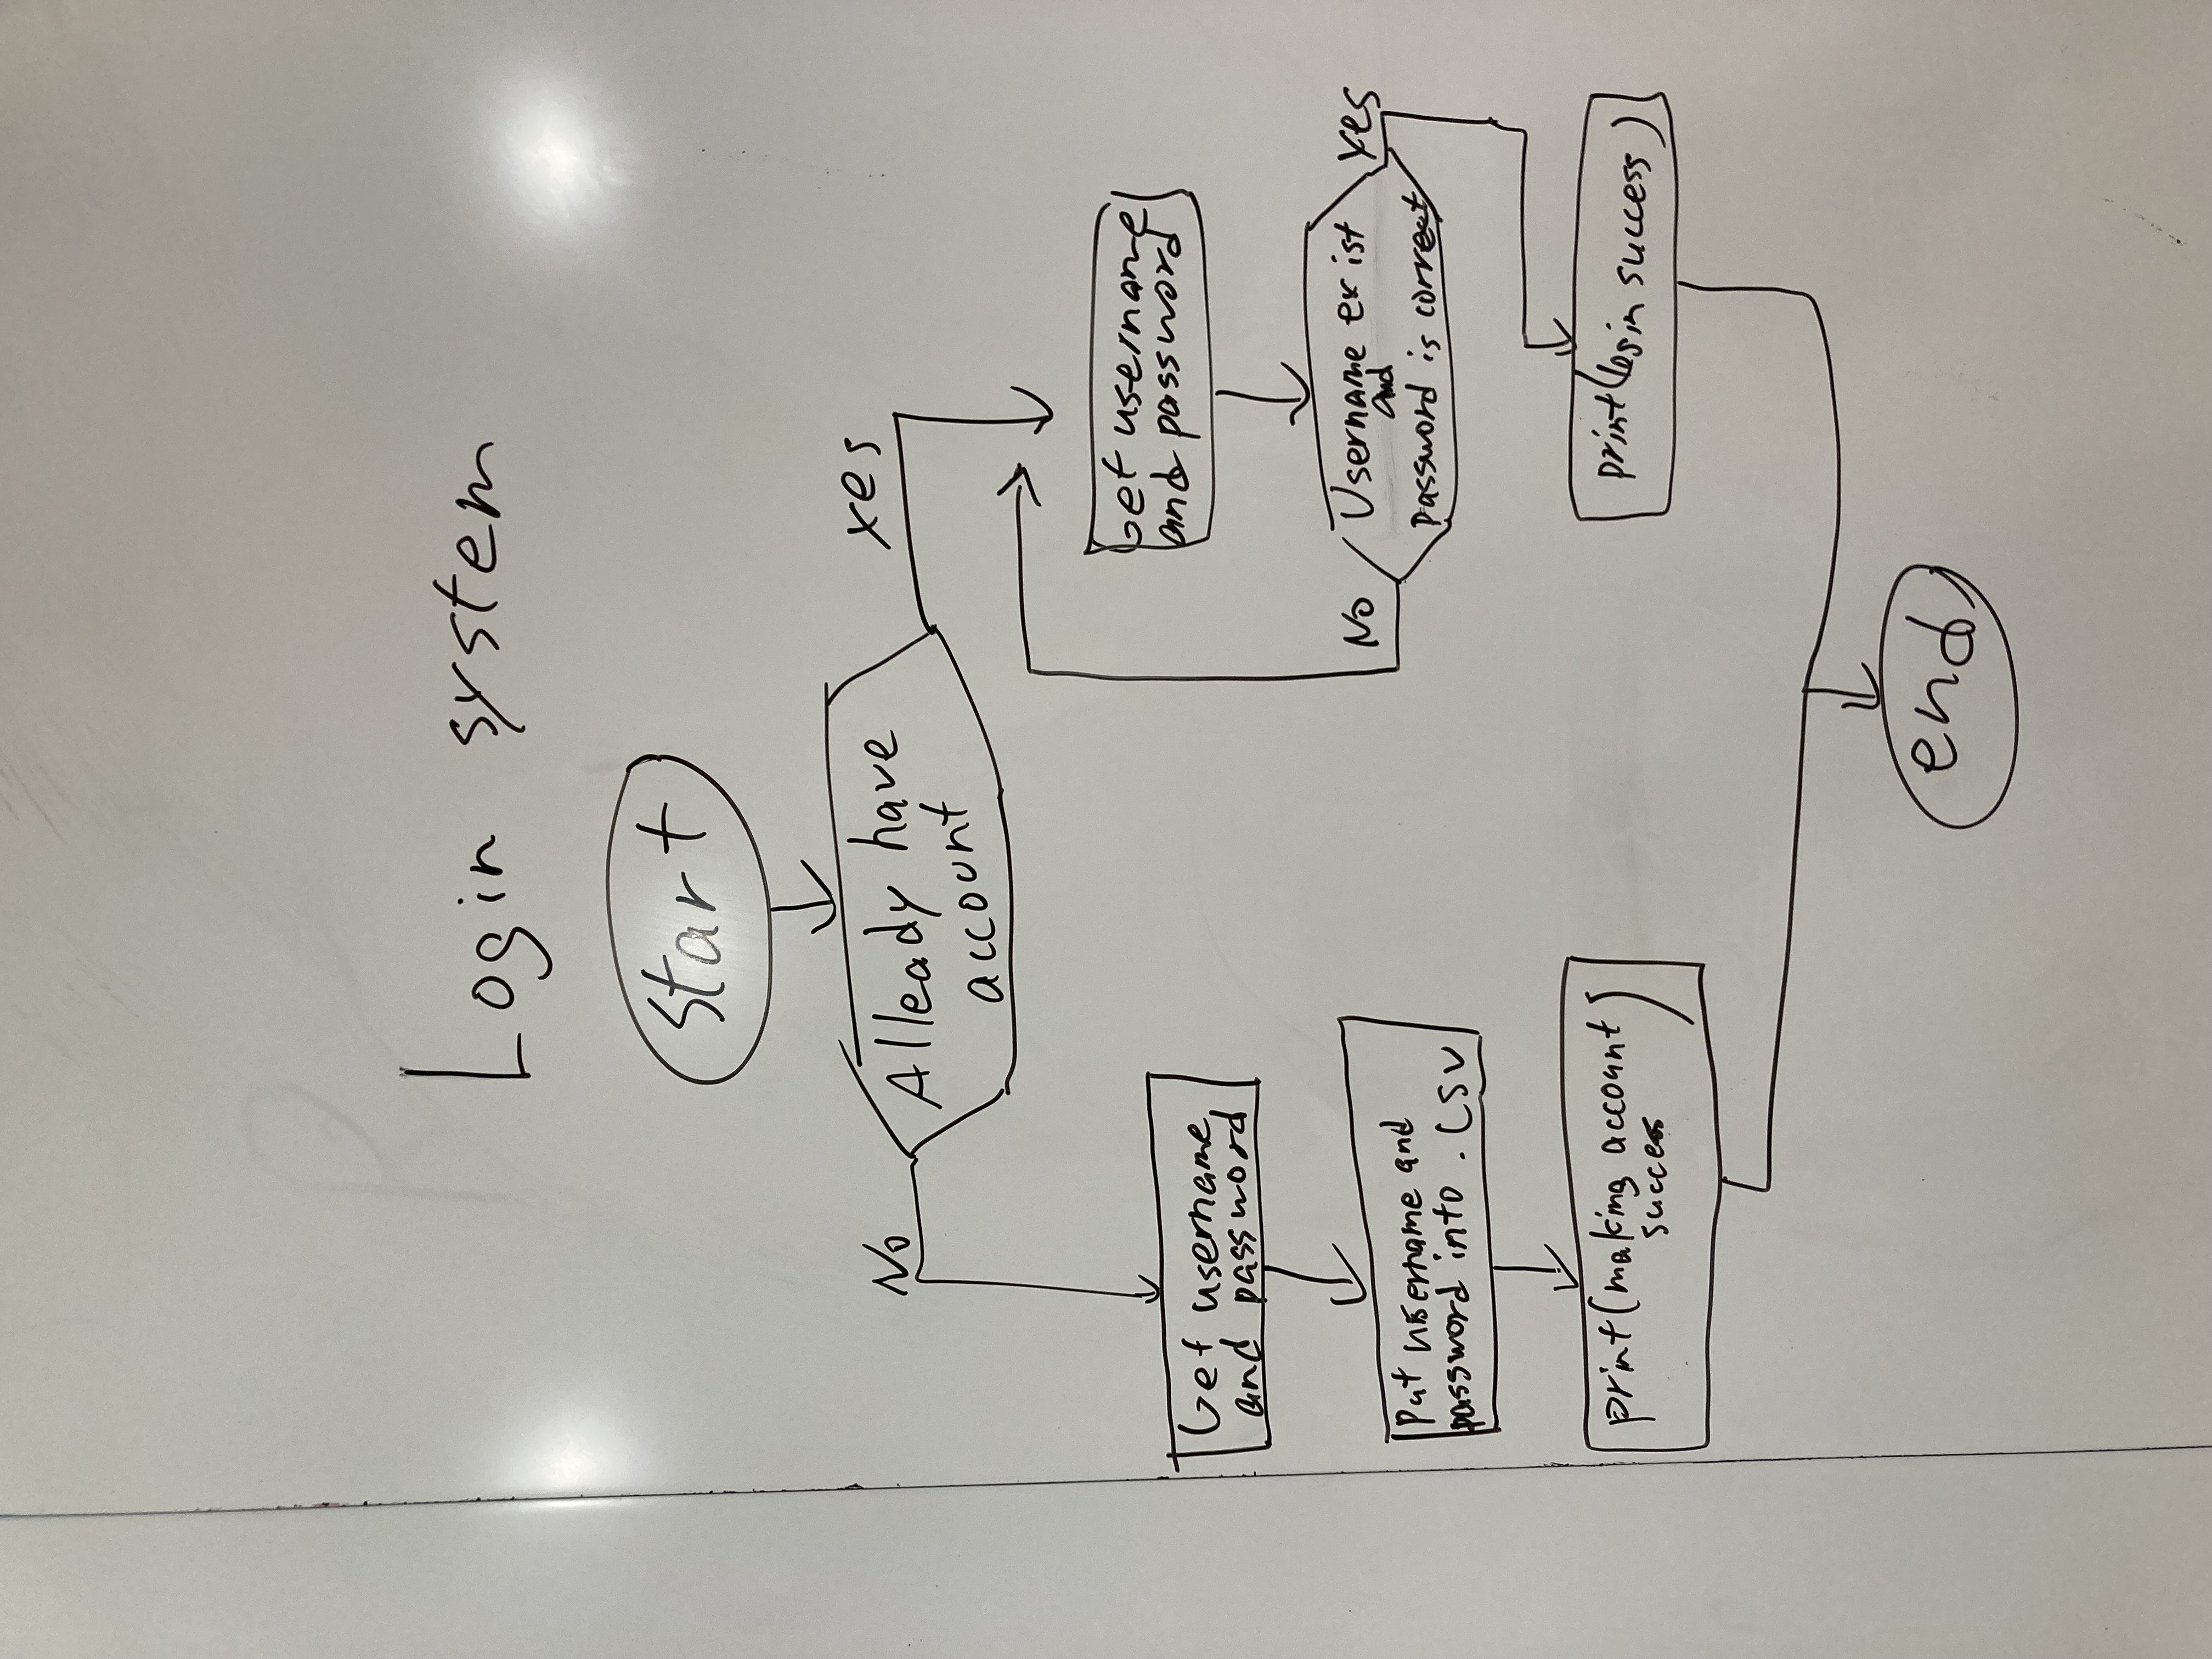 Login system
start
Alleady have
account
No
yes
Get username
and password
Put username and
password into .CSV
print(making account
success)
Get username
and password
Username exist
and
password is correct
No
Yes
print(login success)
end